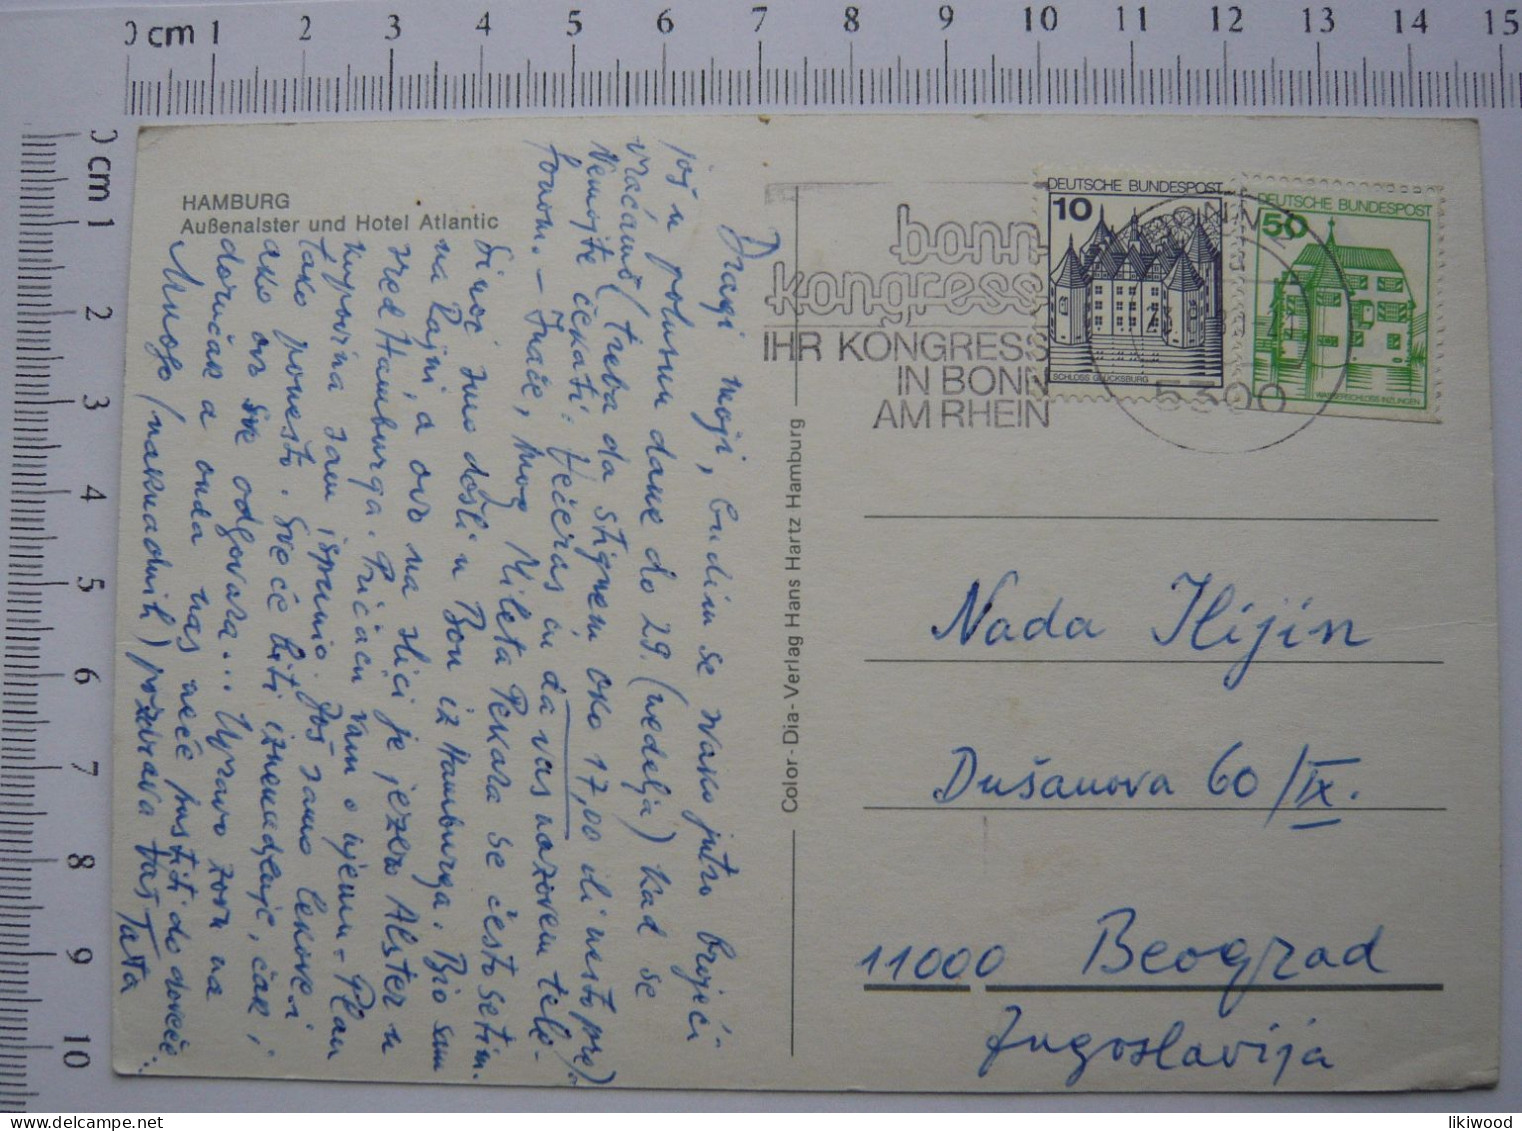 0 cm 1 2 3 4 5 6 7 8 9 10 11 12 13 14 15
0 cm 1 2 3 4 5 6 7 8 9 10
HAMBURG
Außenalster und Hotel Atlantic
Dragi moji, budim se svako jutro brojeći
još u polusnu dane do 29. (nedelja) kad se
vraćamo (treba da stignem oko 17,00 ili nešto pre)
Nemojte čekati. Večeras ću da vas nazovem tele-
fonom. – Inače, mog Mileta Pekara se često setim.
Sinoć smo došli u Bon iz Hamburga. Bio sam
na Rajni, a ovo na slici je jezero Alster u
sred Hamburga. Pričaću vam o njemu – Plan
kupovina sam ispunio. Još samo lekove i
tako ponešto. Sve će biti iznenadjenje, čak i
ako ovo sve odgovara... Upravo zovu na
doručak a onda nas neće pustiti do doveče.
Mnogo (naknadnih) pozdrava Vaš Tata
Color-Dia-Verlag Hans Hartz Hamburg
bonn
kongress
IHR KONGRESS
IN BONN
AM RHEIN
DEUTSCHE BUNDESPOST
10
SCHLOSS GLÜCKSBURG
DEUTSCHE BUNDESPOST
50
WASSERSCHLOSS INZLINGEN
5300
Nada Ilijin
Dušanova 60/IX.
11000 Beograd
Jugoslavija
likiwood